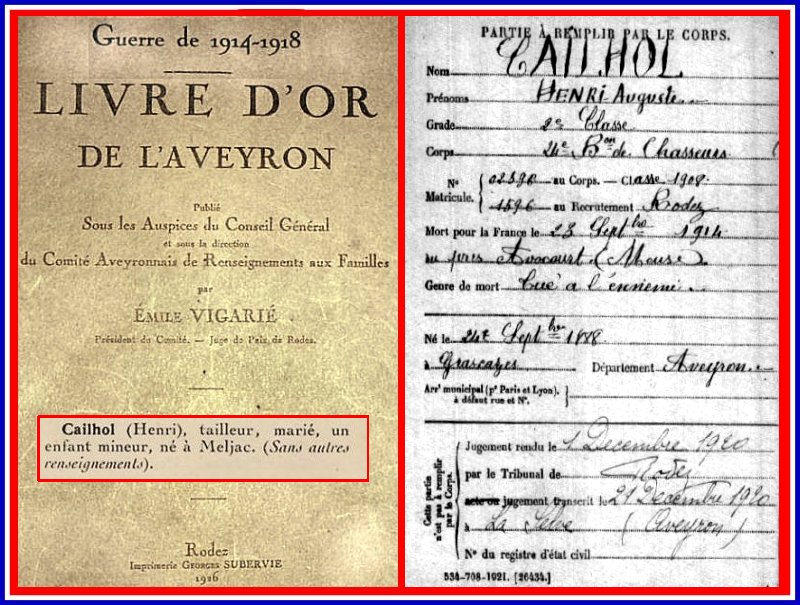 Guerre de 1914-1918
LIVRE D'OR
DE L'AVEYRON
Publié
Sous les Auspices du Conseil Général
et sous la direction
du Comité Aveyronnais de Renseignements aux Familles
par
ÉMILE VIGARIÉ
Président du Comité. — Juge de Paix de Rodez.
Cailhol (Henri), tailleur, marié, un
enfant mineur, né à Meljac. (Sans autres
renseignements).
Rodez
Imprimerie GEORGES SUBERVIE
1926
PARTIE À REMPLIR PAR LE CORPS.
Nom CAILHOL
Prénoms HENRI Auguste
Grade 2e Classe
Corps 24e Bon de Chasseurs
N° 02390 au Corps. — Classe 1908.
Matricule. 1596 au Recrutement Rodez
Mort pour la France le 23 Septbre 1914
au près Avocourt (Meuse)
Genre de mort Tué à l'ennemi
Né le 24 Septbre 1888
à Département Aveyron
Arrt municipal (pr Paris et Lyon),
à défaut rue et N°.
Cette partie
n'est pas à remplir
par le Corps.
Jugement rendu le 1 Décembre 1920
par le Tribunal de Rodez
acte ou jugement transcrit le 21 Décembre 1920
à La Selve (Aveyron)
N° du registre d'état civil
534-708-1921. [26434.]